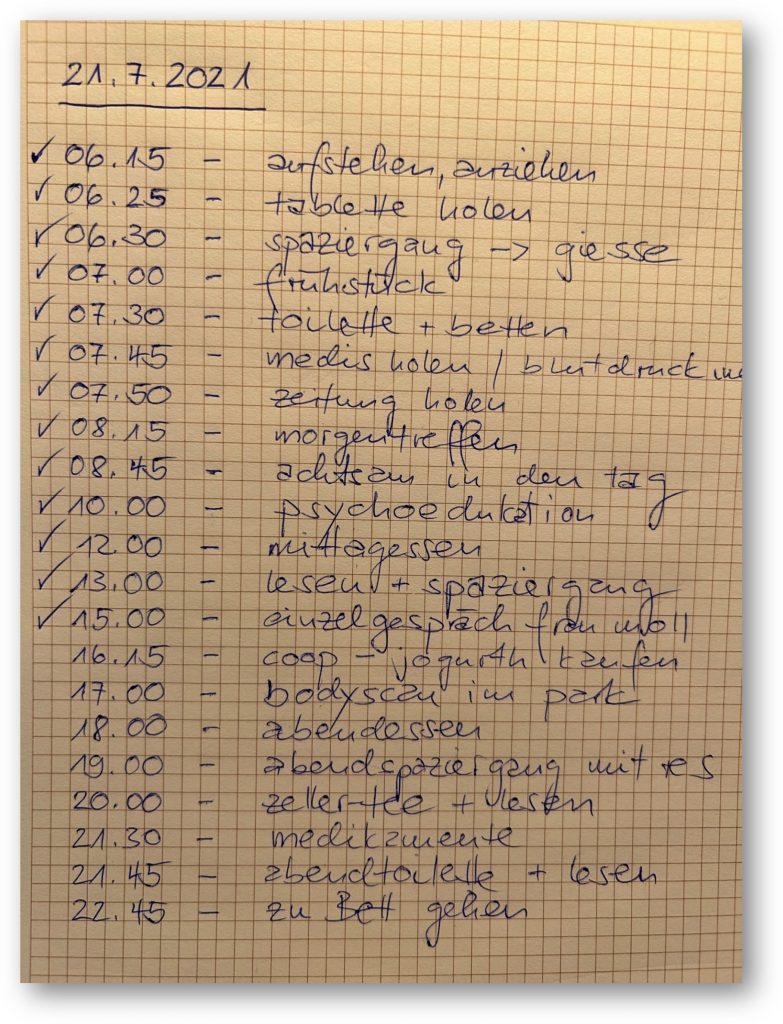 21.7.2021
✓ 06.15 - aufstehen, anziehen
✓ 06.25 - tablette holen
✓ 06.30 - spaziergang -> giesse
✓ 07.00 - frühstück
✓ 07.30 - toilette + betten
✓ 07.45 - medis holen / blutdruck
✓ 07.50 - zeitung holen
✓ 08.15 - morgentreffen
✓ 08.45 - achtsam in den tag
✓ 10.00 - psychoedukation
✓ 12.00 - mittagessen
✓ 13.00 - lesen + spaziergang
✓ 15.00 - einzelgespräch frau moll
16.15 - coop - jogurth kaufen
17.00 - bodyscan im park
18.00 - abendessen
19.00 - abendspaziergang mit es
20.00 - zeller-tee + lesen
21.30 - medikamente
21.45 - abendtoilette + lesen
22.45 - zu Bett gehen